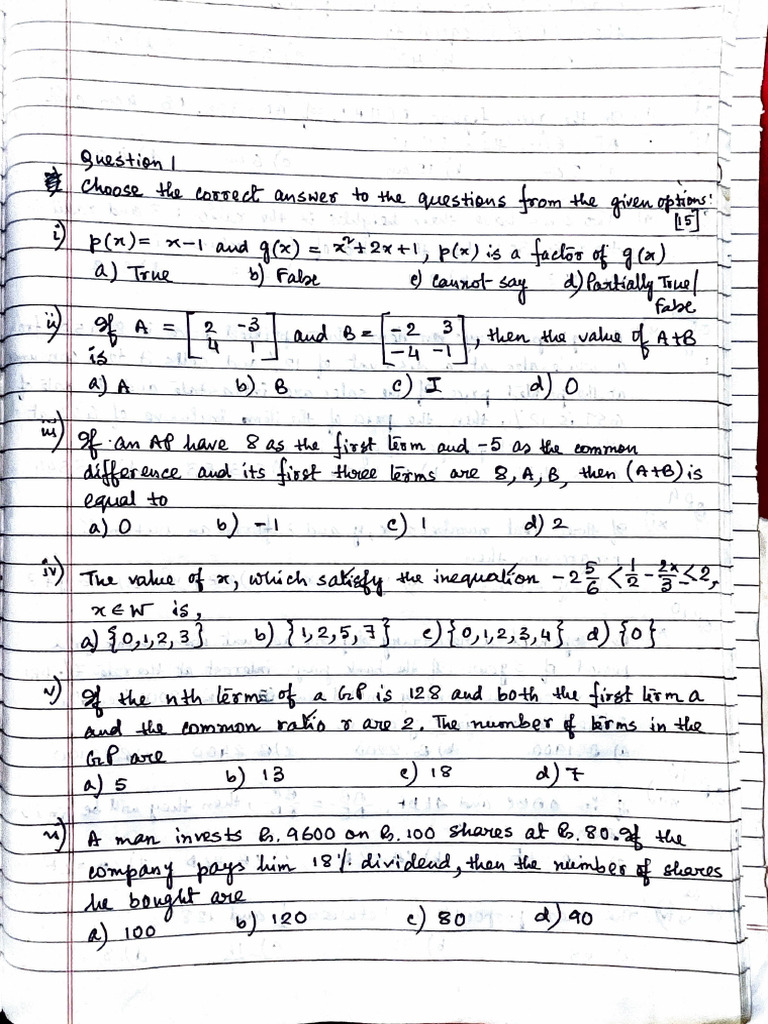 Question 1
Choose the correct answer to the questions from the given options:
[15]
i) p(x) = x-1 and g(x) = x²+2x+1, p(x) is a factor of g(x)
a) True b) False c) cannot say d) Partially True/
False
ii) If A = [2 -3 and B = [-2 3 , then the value of A+B
4 1] -4 -1]
is
a) A b) B c) I d) O
iii) If an AP have 8 as the first term and -5 as the common
difference and its first three terms are 8, A, B, then (A+B) is
equal to
a) 0 b) -1 c) 1 d) 2
iv) The value of x, which satisfy the inequation -2 5/6 < 1/2 - 2x/3 ≤ 2,
x ∈ W is,
a) {0,1,2,3} b) {1,2,5,7} c) {0,1,2,3,4} d) {0}
v) If the nth term of a GP is 128 and both the first term a
and the common ratio r are 2. The number of terms in the
GP are
a) 5 b) 13 c) 18 d) 7
vi) A man invests Rs. 9600 on Rs. 100 shares at Rs. 80. If the
company pays him 18% dividend, then the number of shares
he bought are
a) 100 b) 120 c) 80 d) 90